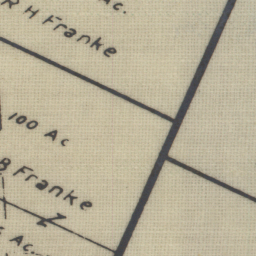 Ac.
R H Franke
100 Ac
B Franke
Z
Ac.